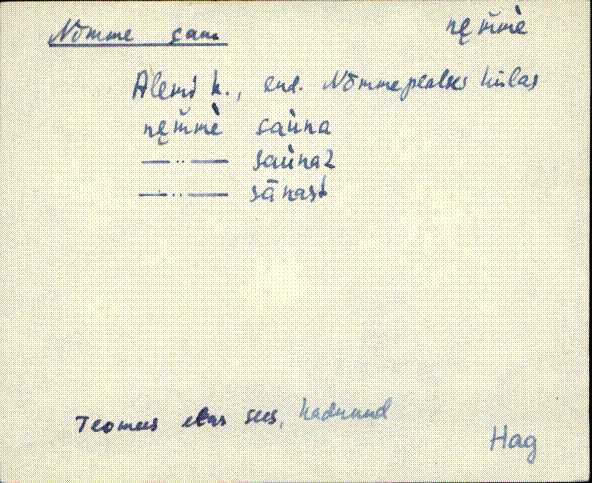 Nõmme saun nę̮m̆mè
Alemi k., end. Nõmmepealses külas
nę̮m̆mè saùna
—··— saùnaz
—··— sānast
Teomees elas sees, kadunud
Hag